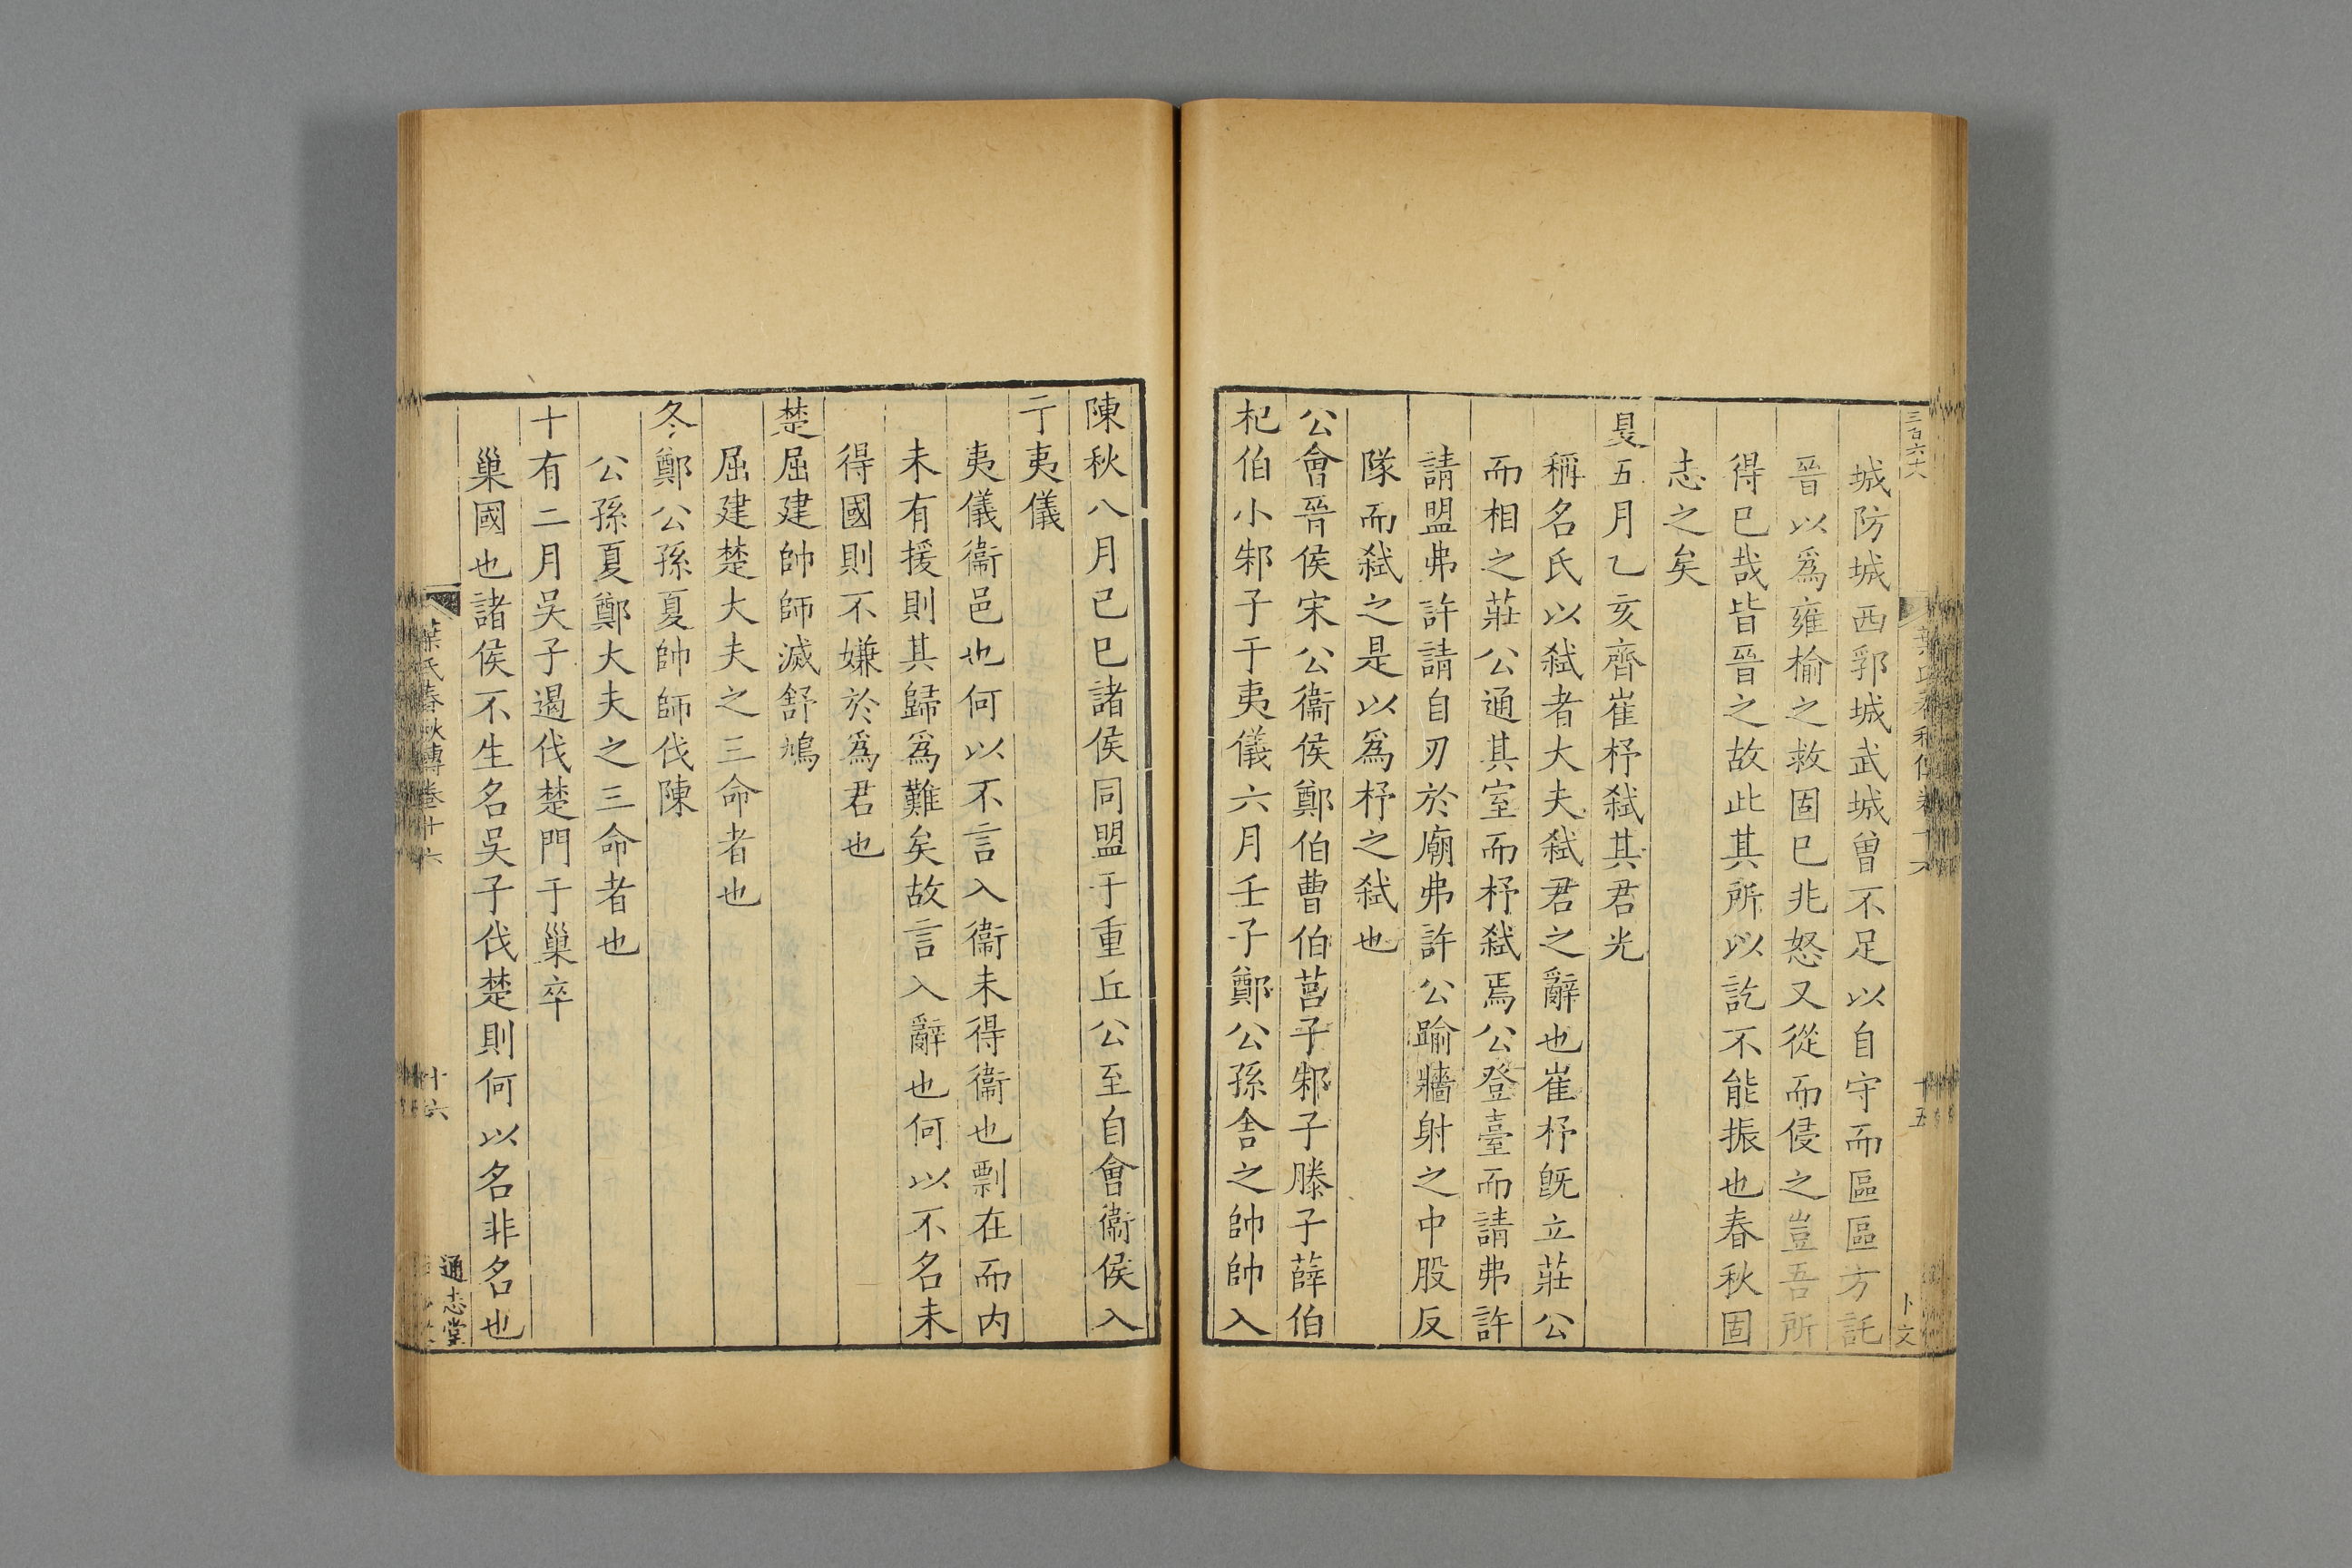 三百六十八
城防城西郛城武城曾不足以自守而區區方託
晉以爲雍榆之救固已非怒又從而侵之豈吾所
得已哉皆晉之故此其所以訖不能振也春秋固
志之矣
夏五月乙亥齊崔杼弑其君光
稱名氏以弑者大夫弑君之辭也崔杼旣立莊公
而相之莊公通其室而杼弑焉公登臺而請弗許
請盟弗許請自刃於廟弗許公踰牆射之中股反
隊而弑之是以爲杼之弑也
公會晉侯宋公衞侯鄭伯曹伯莒子邾子滕子薛伯
杞伯小邾子于夷儀六月壬子鄭公孫舍之帥師入
陳秋八月己巳諸侯同盟于重丘公至自會衞侯入
于夷儀
夷儀衞邑也何以不言入衞未得衞也剽在而内
未有援則其歸爲難矣故言入辭也何以不名未
得國則不嫌於爲君也
楚屈建帥師滅舒鳩
屈建楚大夫之三命者也
冬鄭公孫夏帥師伐陳
公孫夏鄭大夫之三命者也
十有二月吳子遏伐楚門于巢卒
巢國也諸侯不生名吳子伐楚則何以名非名也
葉氏春秋傳卷十六
十六
通志堂